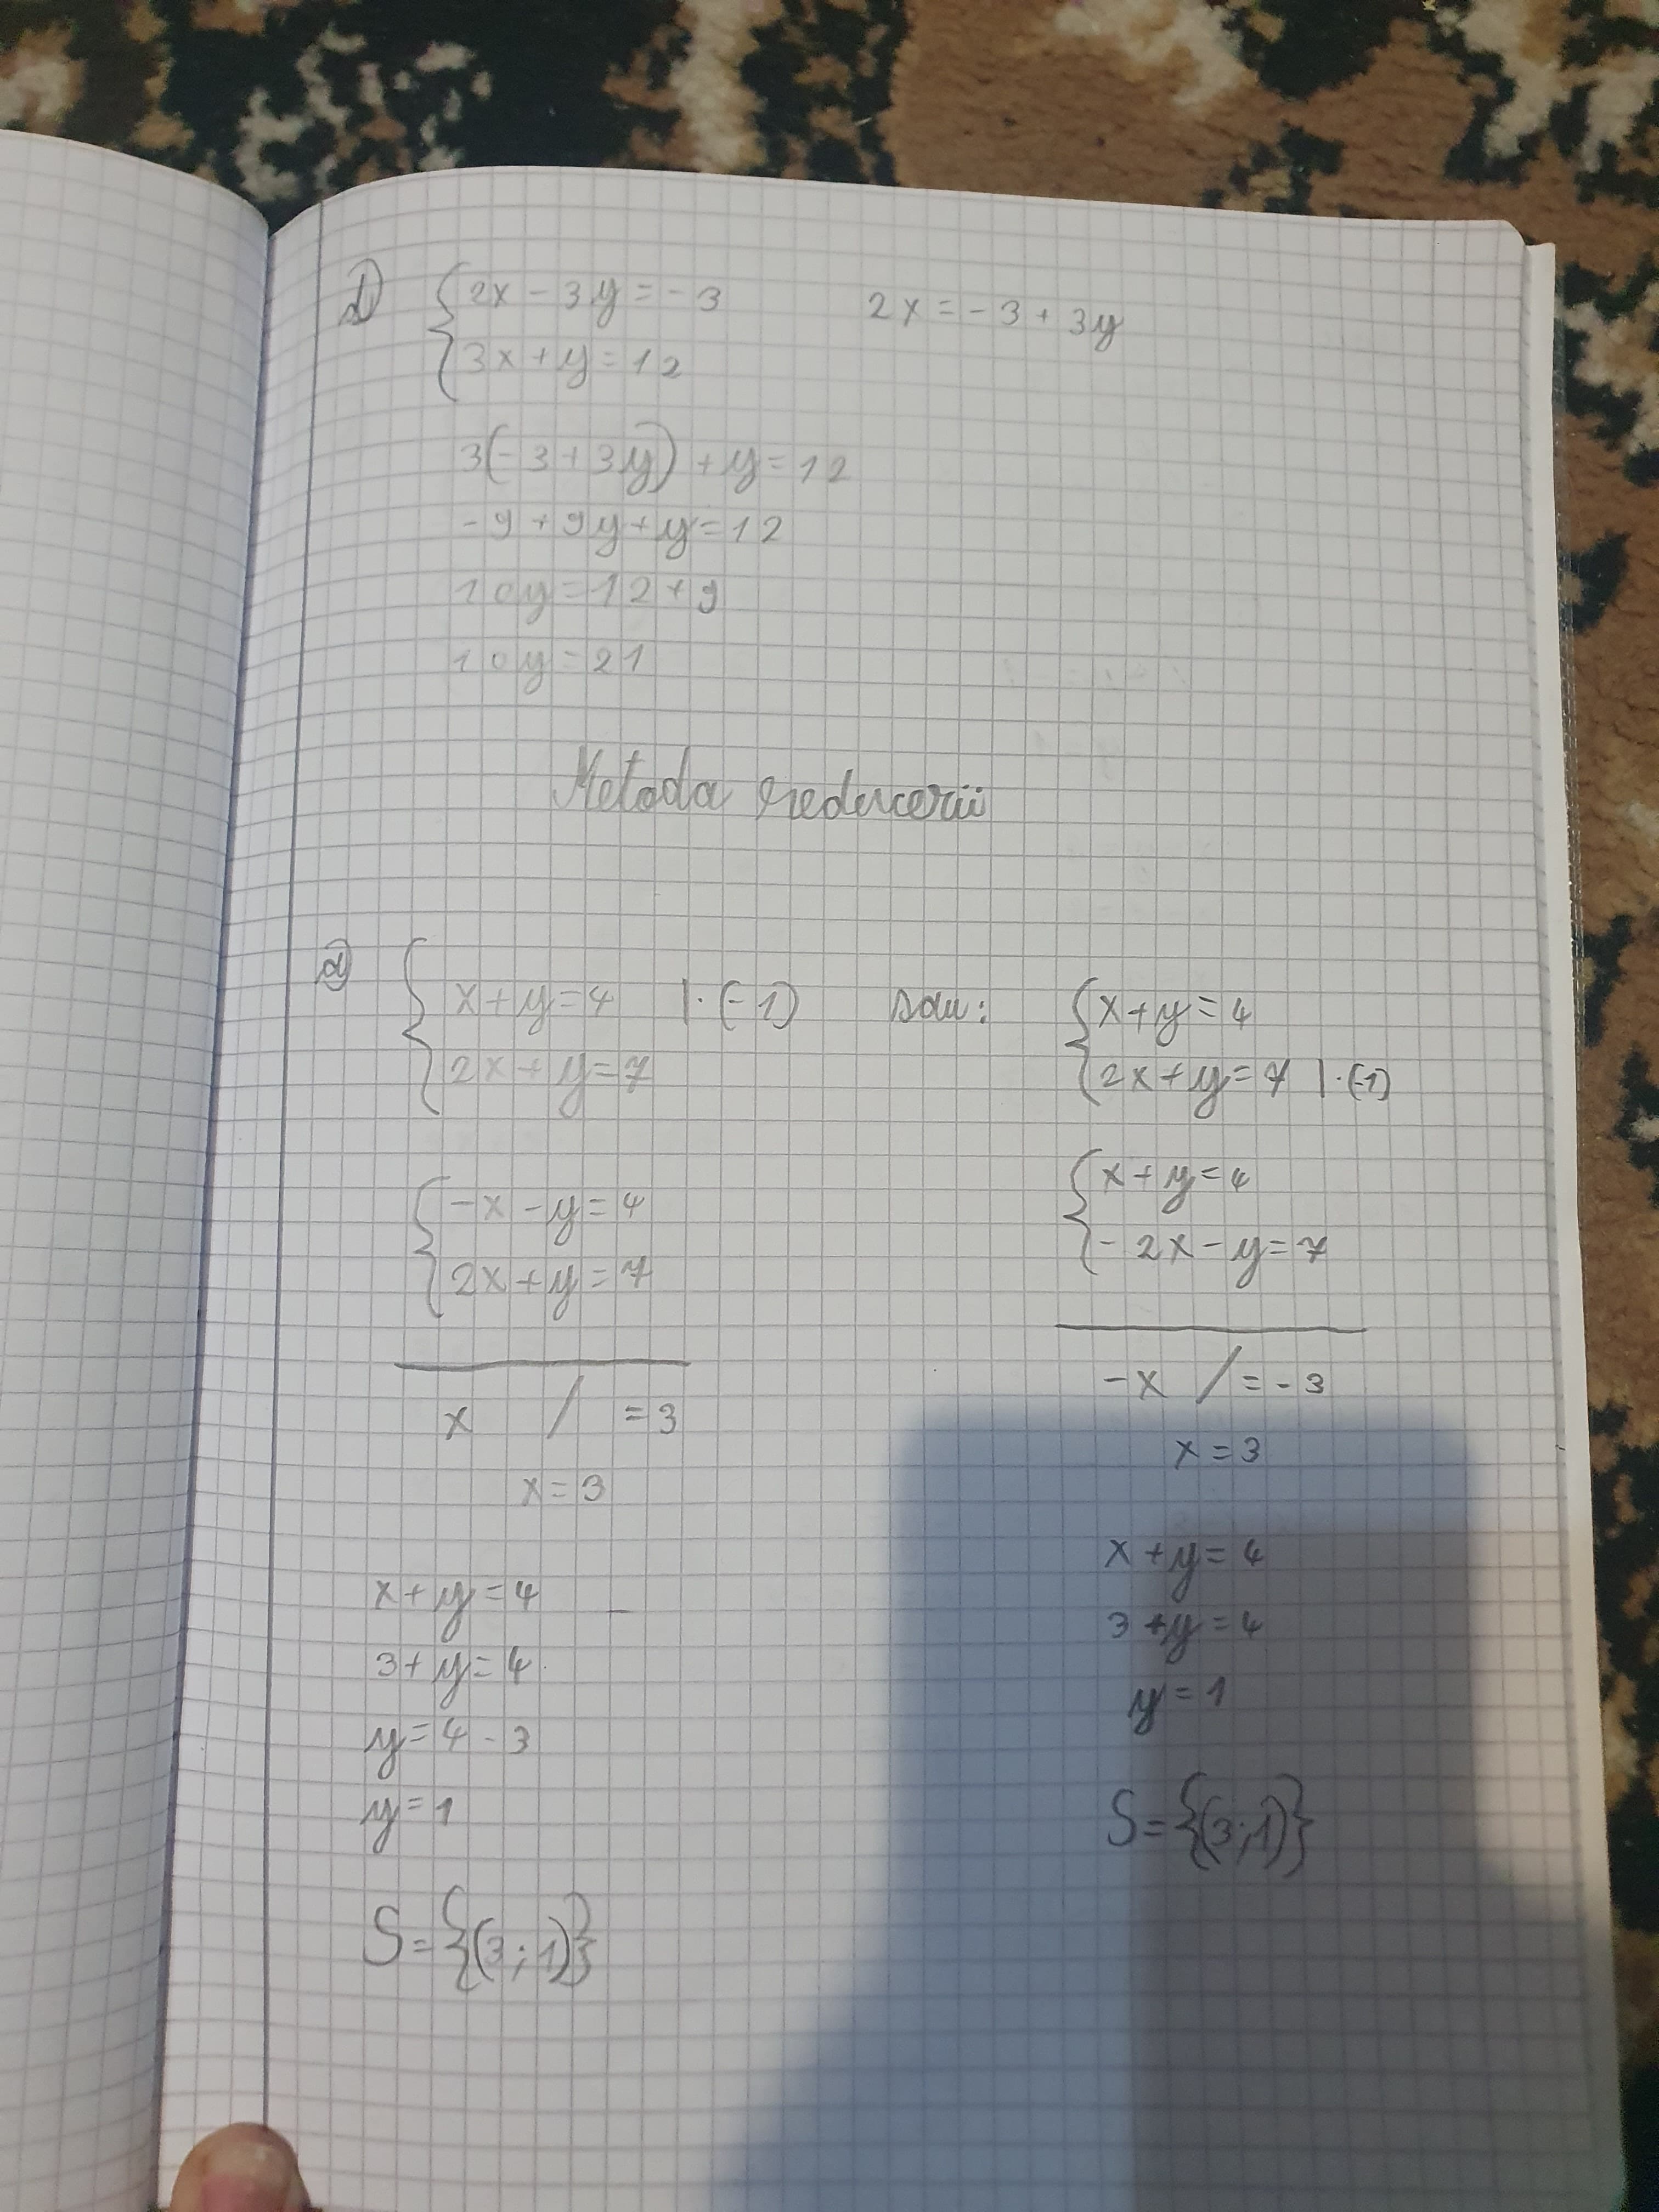 d) { 2x - 3y = -3    2x = -3 + 3y
3x + y = 12
3(-3 + 3y) + y = 12
-9 + 9y + y = 12
10y = 12 + 9
10y = 21
Metoda reducerii
a) { x + y = 4 | · (-1)    sau: { x + y = 4
2x + y = 7    2x + y = 7 | · (-1)
{ -x - y = 4    { x + y = 4
2x + y = 7    - 2x - y = 7
x / = 3    -x / = -3
x = 3    x = 3
x + y = 4    x + y = 4
3 + y = 4    3 + y = 4
y = 4 - 3    y = 1
y = 1
S = {(3; 1)}    S = {(3; 1)}